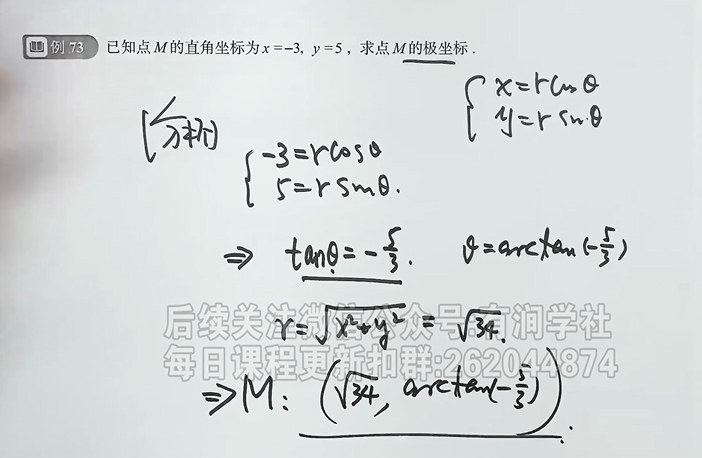 例 73 已知点 M 的直角坐标为 x = -3, y = 5 , 求点 M 的极坐标 .
{ x = r cos θ
y = r sin θ
[分析]
{ -3 = r cos θ
5 = r sin θ.
⇒ tan θ = - 5/3 . θ = arctan (- 5/3)
r = √(x² + y²) = √34.
后续关注微信公众号:研涧学社
每日课程更新扣群:262044874
⇒ M : (√34, arctan(- 5/3)) .